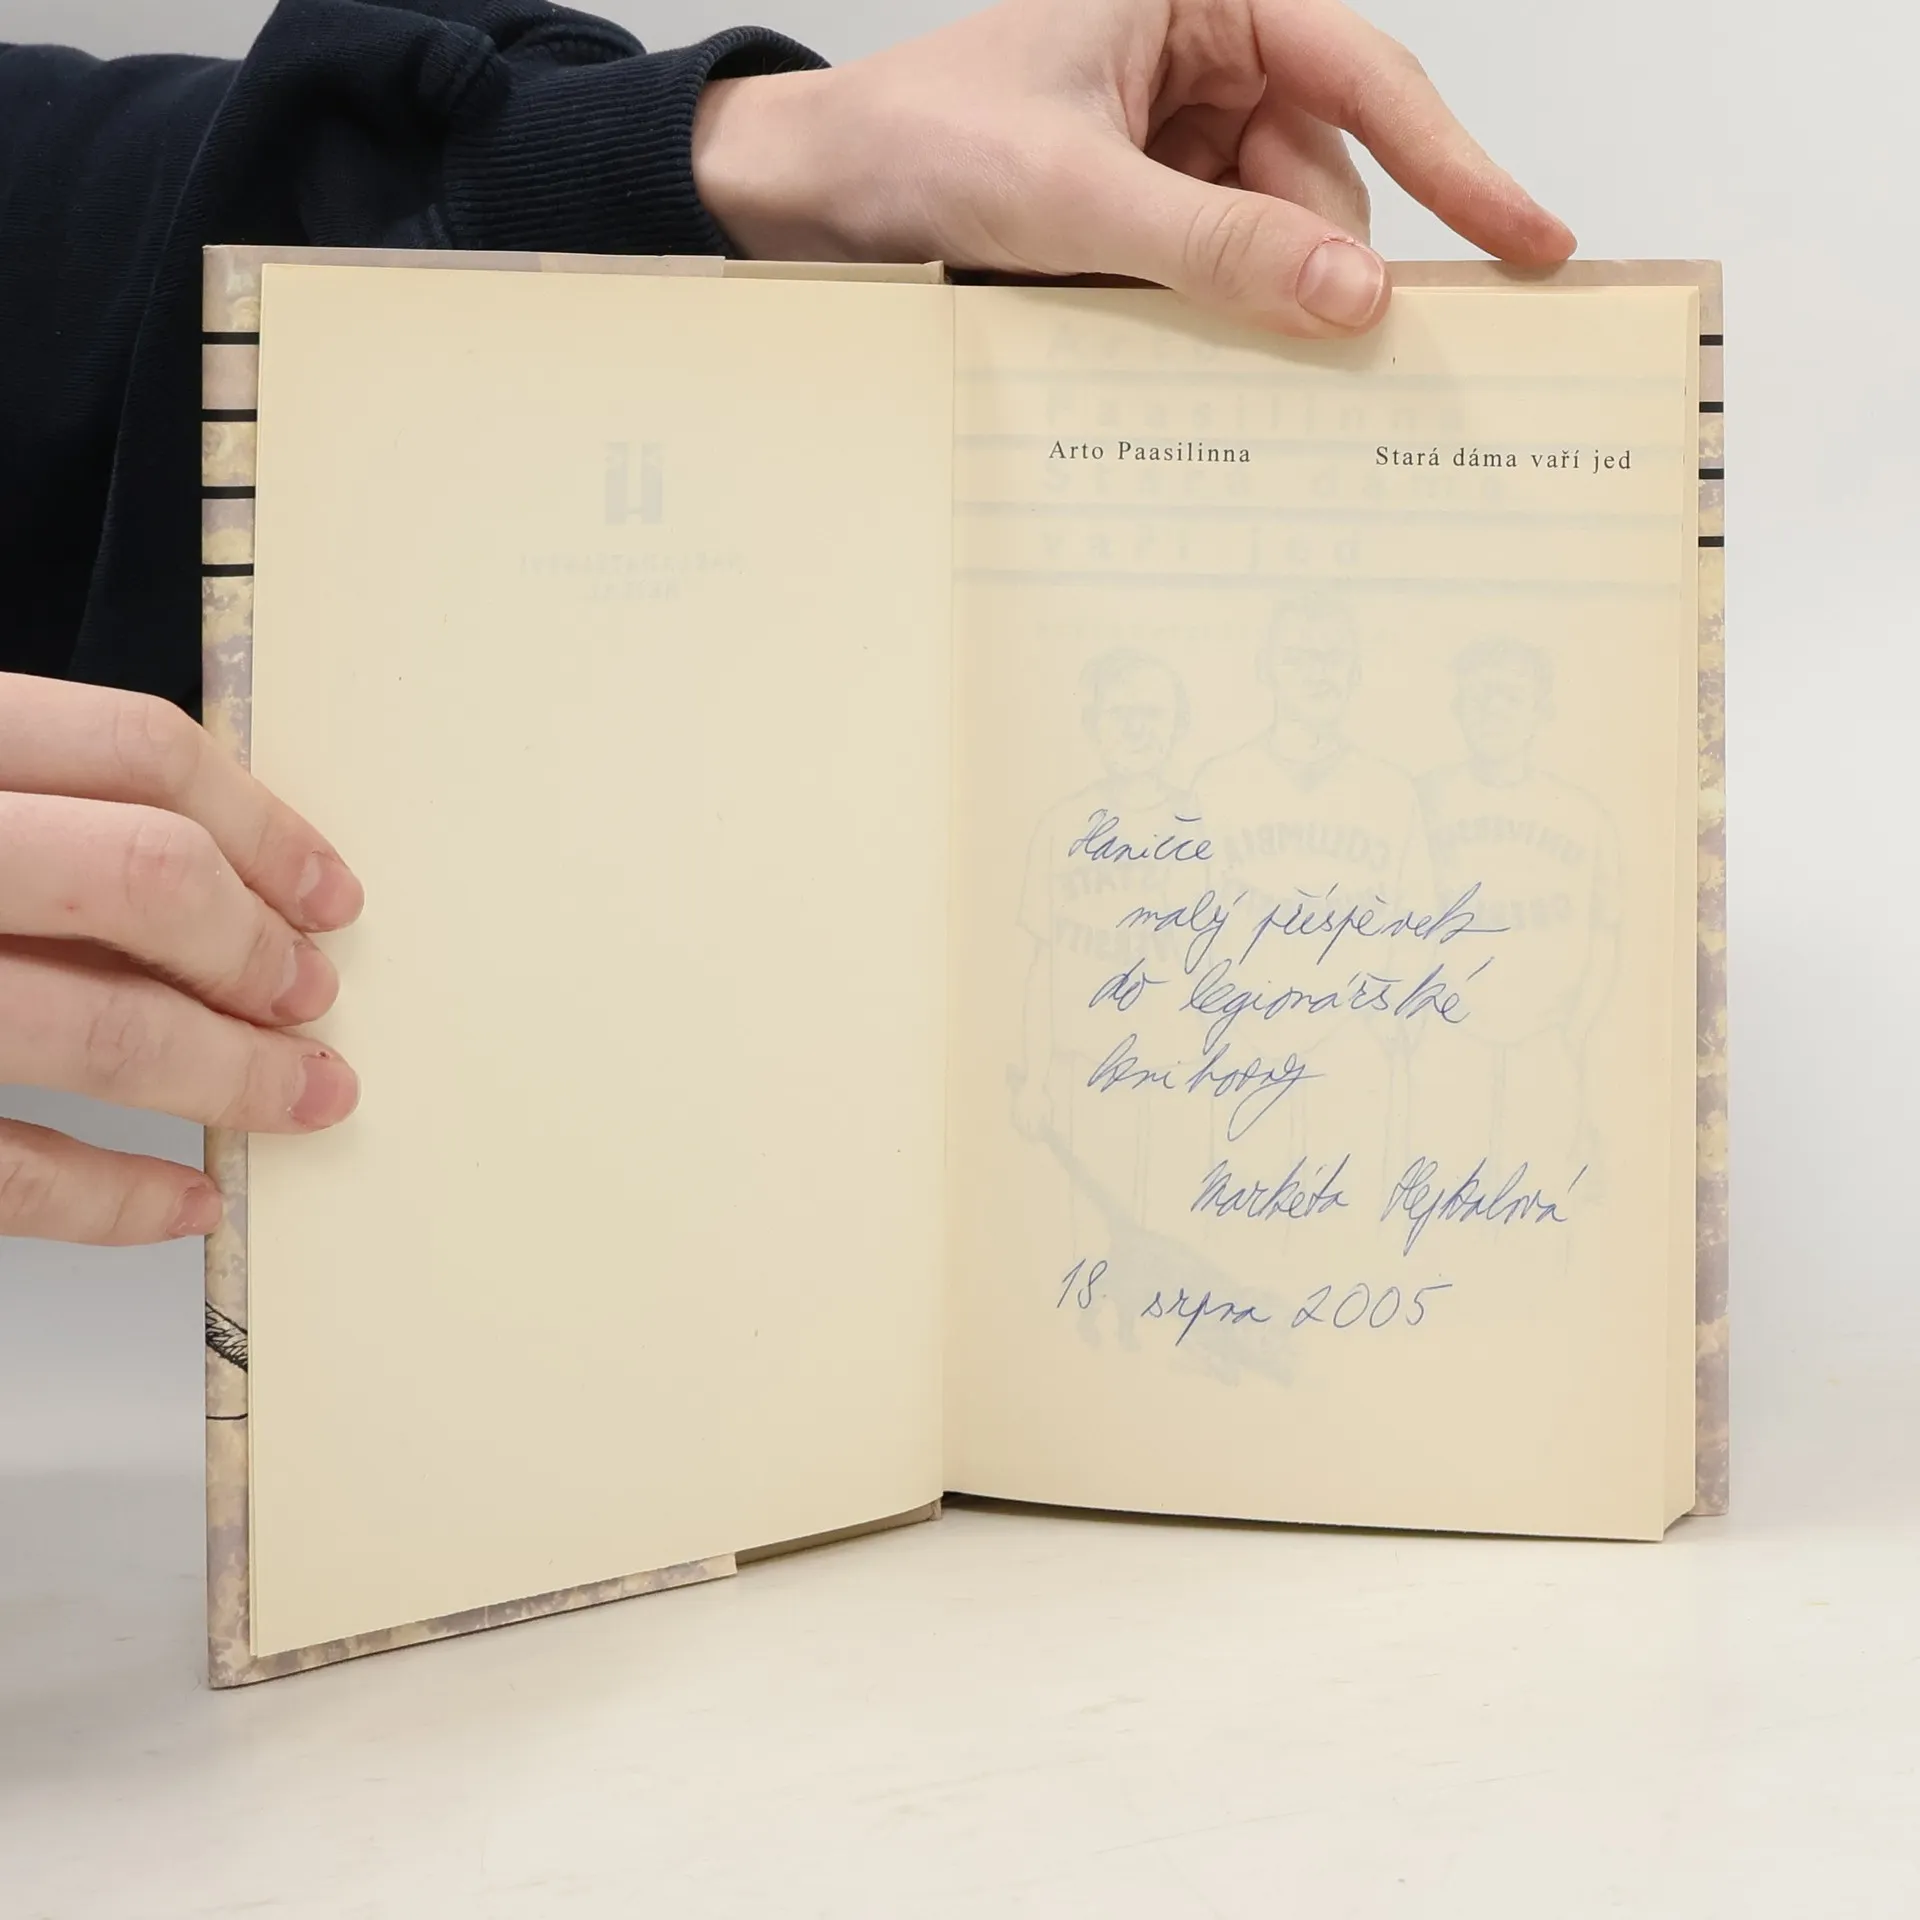 Arto Paasilinna Stará dáma vaří jed
Haničce
malý příspěvek
do legionářské
knihovny
Markéta Hejkalová
18. srpna 2005